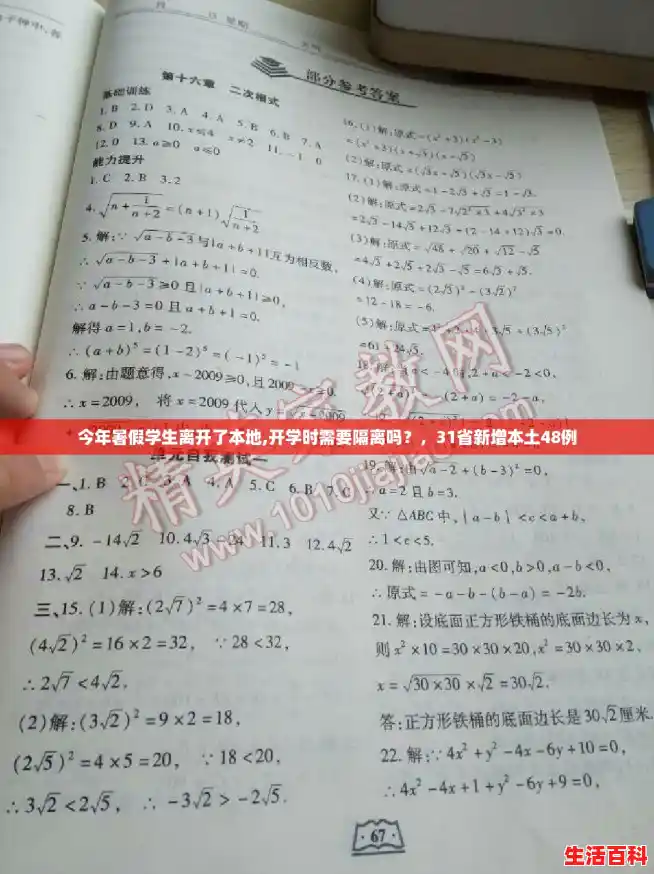 月 日 星期
部分参考答案
第十六章 二次根式
基础训练
1. B 2. D 3. A 4. A 5. B 6. B 7. A
8. D 9. A 10. x≤4 x≠2 11. -1 0
12. D 13. a≥0 a≤0
能力提升
1. C 2. B 3. 2
4. √(n+1/(n+2))=(n+1)√(1/(n+2))
5. 解:∵√(a-b-3)与|a+b+1|互为相反数,
∴√(a-b-3)+|a+b+1|=0.
∵√(a-b-3)≥0且|a+b+1|≥0,
∴a-b-3=0且a+b+1=0.
解得a=1,b=-2.
∴(a+b)⁵=(1-2)⁵=(-1)⁵=-1
6. 解:由题意得,x-2009≥0,且2009-x≥0
∴x=2009, 将x=2009代入y=
今年暑假学生离开了本地,开学时需要隔离吗？，31省新增本土48例
单元自我测试一
一、1. B 2. C 3. C 4. A 5. C 6. B 7. C
8. B
二、9. -14√2 10. 4√3-24 11. 3 12. 4√2
13. √2 14. x>6
三、15. (1)解:(2√7)²=4×7=28,
(4√2)²=16×2=32, ∵28<32,
∴2√7<4√2.
(2)解:(3√2)²=9×2=18,
(2√5)²=4×5=20, ∵18<20,
∴3√2<2√5, ∴-3√2>-2√5.
16. (1)解:原式=(x²+3)(x²-3)
=(x²+3)(x+√3)(x-√3)
(2)解:原式=(√3x+√5)(√3x-√5)
17. (1)解:原式=1-2√3+√3=1-√3.
(2)解:原式=2√3-7√(2²×3)+4√(3²×3)
=2√3-14√3+12√3=(2-14+12)√3=0.
(3)解:原式=√48+√20+√12-√5
=4√3+2√5+2√3-√5=6√3+√5.
(4)解:原式=(2√3)²-(3√2)²
=12-18=-6.
(5)解:原式=4²+2×4×3√5+(3√5)²
=61+24√5.
19. 解:由√(a-2)+(b-3)²=0,
∴a=2且b=3.
又∵△ABC中,|a-b|<c<a+b,
∴1<c<5.
20. 解:由图可知,a<0,b>0,a-b<0,
∴原式=-a-b-(b-a)=-2b.
21. 解:设底面正方形铁桶的底面边长为x,
则x²×10=30×30×20,x²=30×30×2,
x=√(30×30)×√2=30√2.
答:正方形铁桶的底面边长是30√2厘米.
22. 解:∵4x²+y²-4x-6y+10=0,
∴4x²-4x+1+y²-6y+9=0,
·67·
精英家教网
www.1010jiajiao.com
生活百科